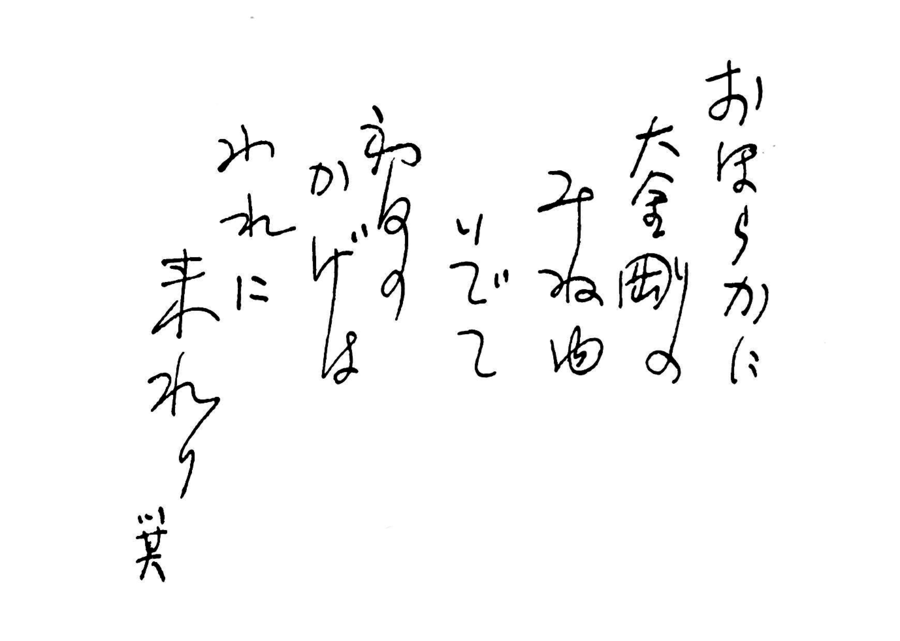 おほらかに
大金剛の
みねゆ
いでて
初日の
かげは
われに
来れり